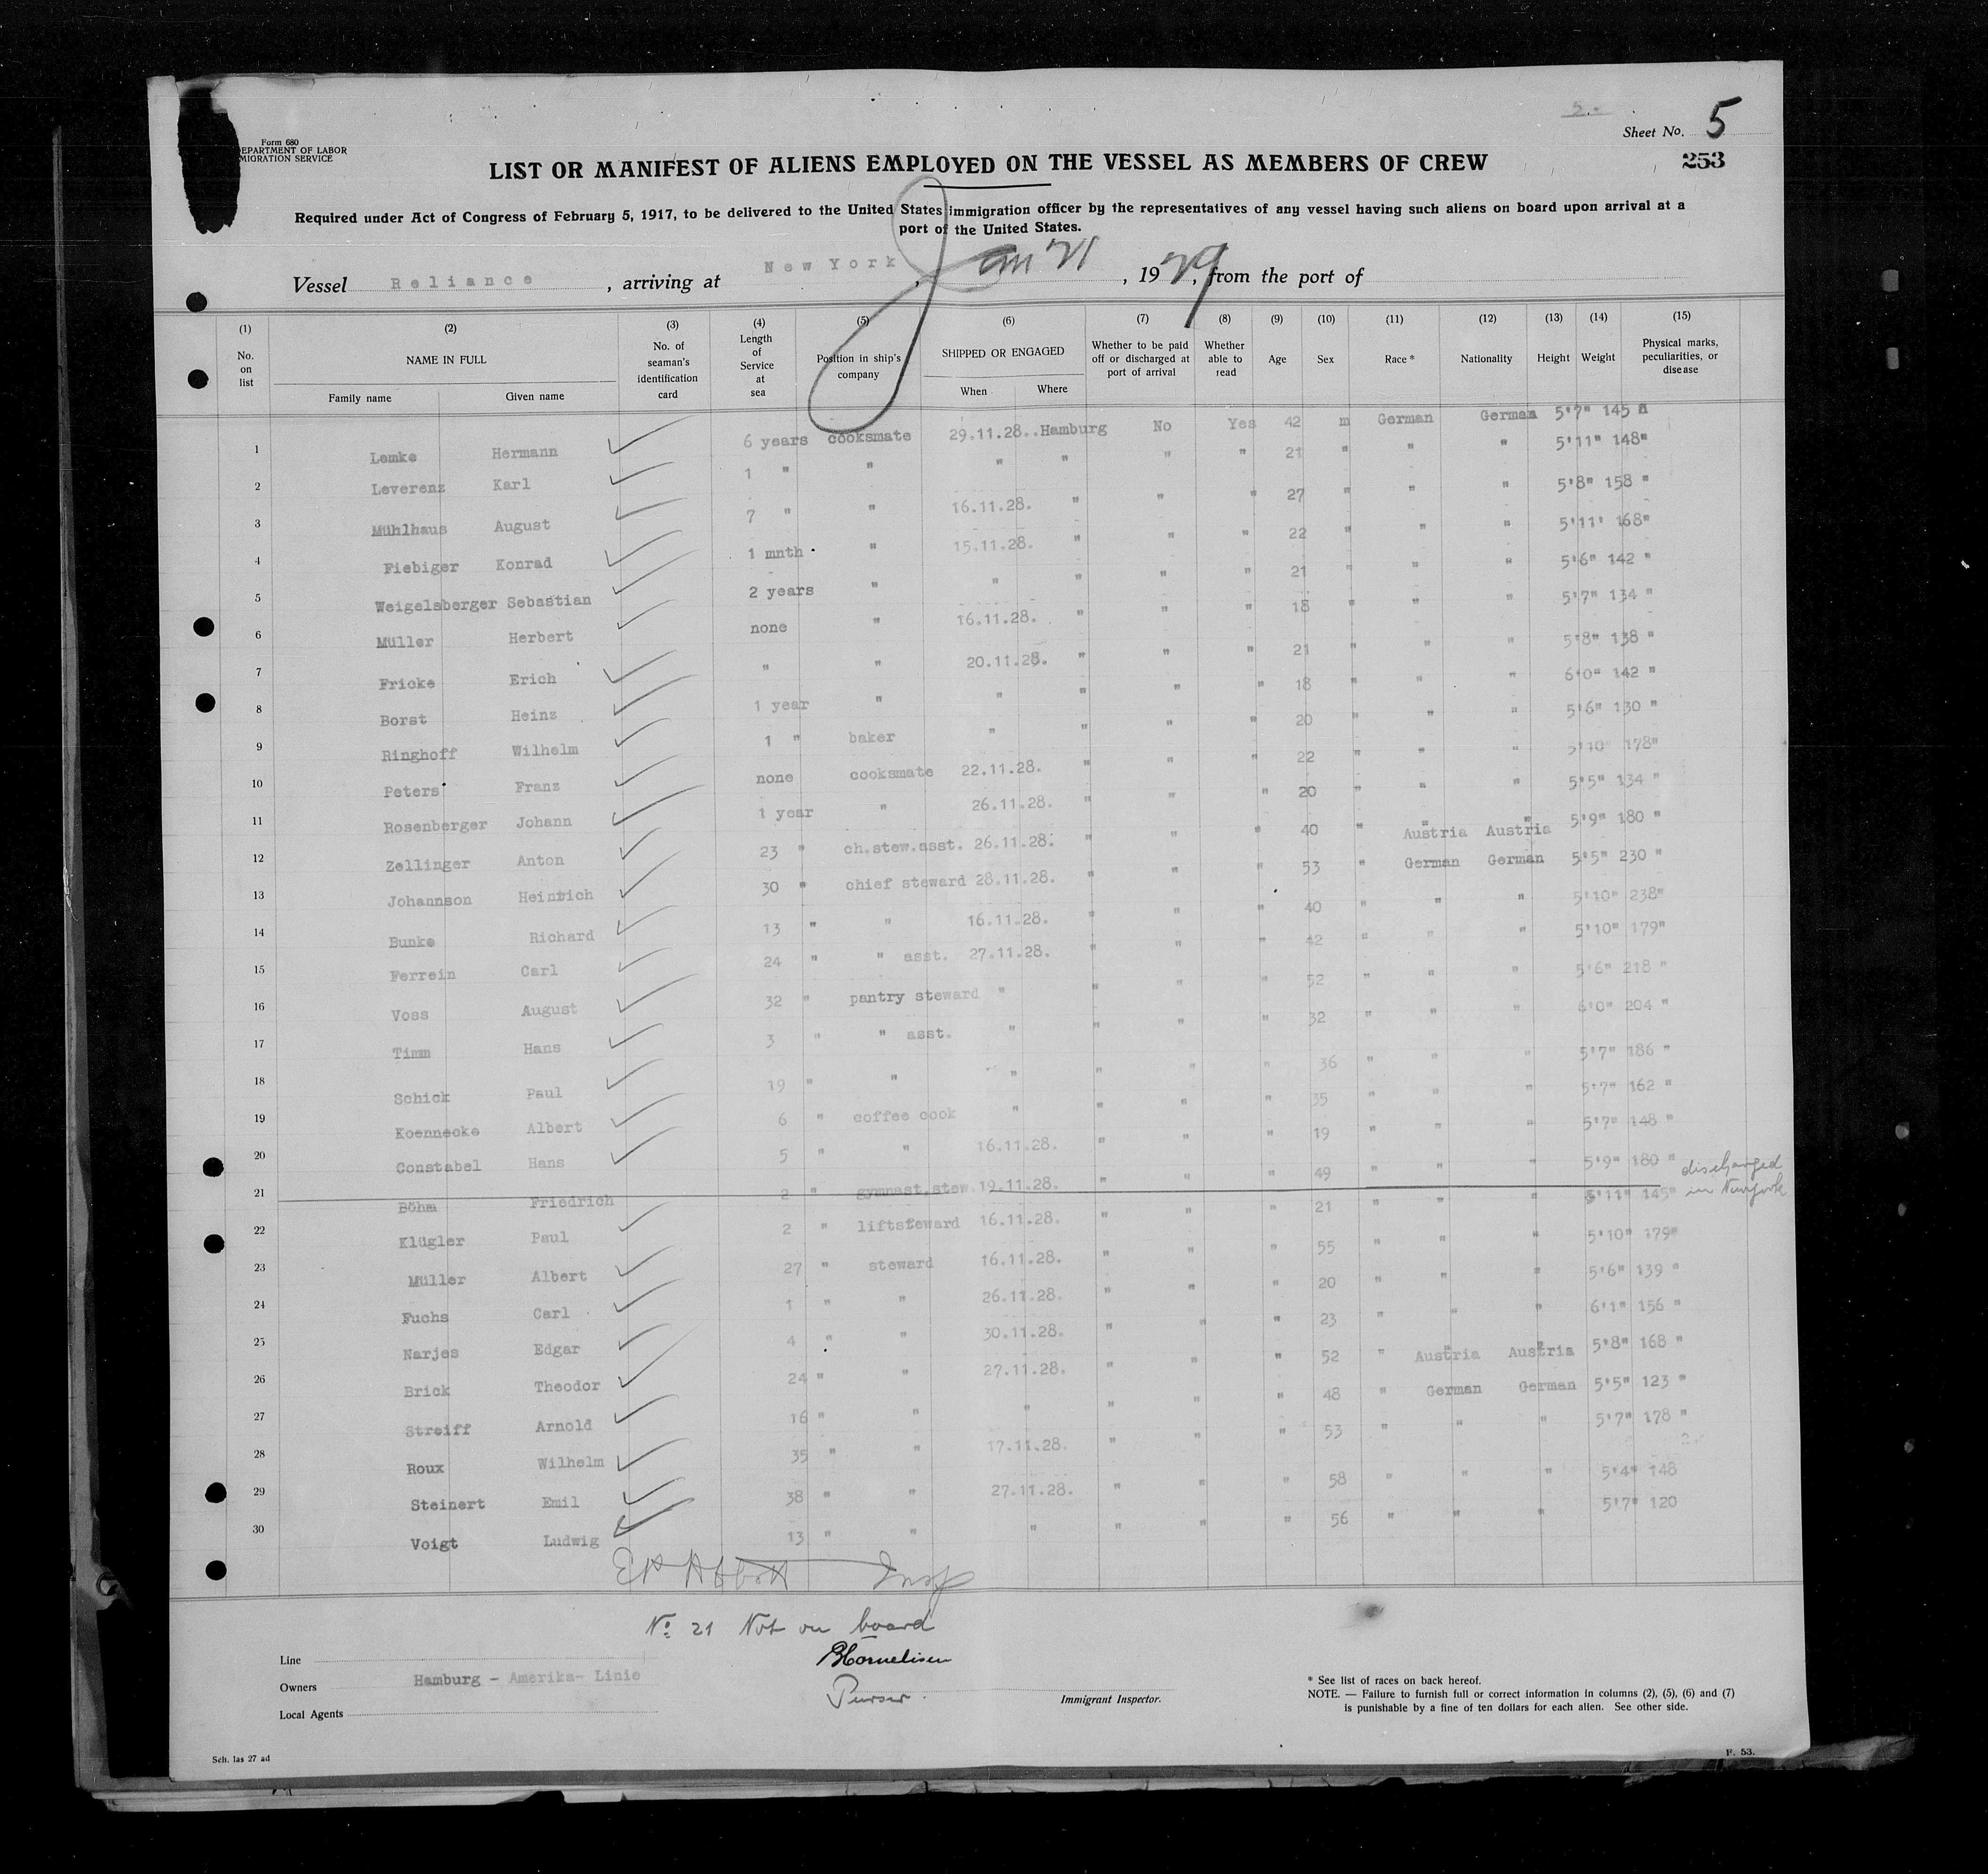 5.-
Sheet No. 5
Form 680
EPARTMENT OF LABOR
MIGRATION SERVICE
253
LIST OR MANIFEST OF ALIENS EMPLOYED ON THE VESSEL AS MEMBERS OF CREW
Required under Act of Congress of February 5, 1917, to be delivered to the United States immigration officer by the representatives of any vessel having such aliens on board upon arrival at a
port of the United States.
Vessel Reliance, arriving at New York, Jan 21, 1929, from the port of
(1) (2) (3) (4) (5) (6) (7) (8) (9) (10) (11) (12) (13) (14) (15)
No. on list NAME IN FULL Family name Given name No. of seaman's identification card Length of Service at sea Position in ship's company SHIPPED OR ENGAGED When Where Whether to be paid off or discharged at port of arrival Whether able to read Age Sex Race * Nationality Height Weight Physical marks, peculiarities, or disease
1 Lemke Hermann 6 years cooksmate 29.11.28. Hamburg No Yes 42 m German German 5'7" 145 "
2 Leverenz Karl 1 " " " " " " 21 " " " 5'11" 148"
3 Mühlhaus August 7 " " 16.11.28. " " " 27 " " " 5'8" 158 "
4 Fiebiger Konrad 1 mnth. " 15.11.28. " " " 22 " " " 5'11' 168"
5 Weigelsberger Sebastian 2 years " " " " " 21 " " " 5'6" 142 "
6 Müller Herbert none " 16.11.28. " " " 18 " " " 5'7" 134 "
7 Fricke Erich " " 20.11.28. " " " 21 " " " 5'8" 138 "
8 Borst Heinz 1 year " " " " " 18 " " " 6'0" 142 "
9 Ringhoff Wilhelm 1 " baker " " " " 20 " " " 5'6" 130 "
10 Peters Franz none cooksmate 22.11.28. " " " 22 " " " 5'10" 178"
11 Rosenberger Johann 1 year " 26.11.28. " " " 20 " " " 5'5" 134 "
12 Zellinger Anton 23 " ch.stew.asst. 26.11.28. " " " 40 " Austria Austria 5'9" 180 "
13 Johannson Heinrich 30 " chief steward 28.11.28. " " " 53 " German German 5'5" 230 "
14 Bunke Richard 13 " " 16.11.28. " " " 40 " " " 5'10" 238"
15 Ferrein Carl 24 " " asst. 27.11.28. " " " 42 " " " 5'10" 179"
16 Voss August 32 " pantry steward " " " " 52 " " " 5'6" 218 "
17 Timm Hans 3 " " asst. " " " " 32 " " " 6'0" 204 "
18 Schick Paul 19 " " " " " " 36 " " " 5'7" 186 "
19 Koennecke Albert 6 " coffee cook " " " " 35 " " " 5'7" 162 "
20 Constabel Hans 5 " " 16.11.28. " " " 19 " " " 5'7" 148 "
21 Böhm Friedrich 2 " gymnast.stew. 19.11.28. " " " 49 " " " 5'9" 180 " discharged in Newyork
22 Klügler Paul 2 " liftsteward 16.11.28. " " " 21 " " " 5'11" 145"
23 Müller Albert 27 " steward 16.11.28. " " " 55 " " " 5'10" 179"
24 Fuchs Carl 1 " " 26.11.28. " " " 20 " " " 5'6" 139 "
25 Narjes Edgar 4 " " 30.11.28. " " " 23 " " " 6'1" 156 "
26 Brick Theodor 24 " " 27.11.28. " " " 52 " Austria Austria 5'8" 168 "
27 Streiff Arnold 16 " " " " " " 48 " German German 5'5" 123 "
28 Roux Wilhelm 35 " " 17.11.28. " " " 53 " " " 5'7" 178 "
29 Steinert Emil 38 " " 27.11.28. " " " 58 " " " 5'4" 148
30 Voigt Ludwig 13 " " " " " " 56 " " " 5'7" 120
Abbott Insp
No 21 Not on board
Line
Owners Hamburg - Amerika- Linie
Local Agents
Purser.
Immigrant Inspector.
* See list of races on back hereof.
NOTE. — Failure to furnish full or correct information in columns (2), (5), (6) and (7)
is punishable by a fine of ten dollars for each alien. See other side.
Sch. las 27 ad
F. 53.